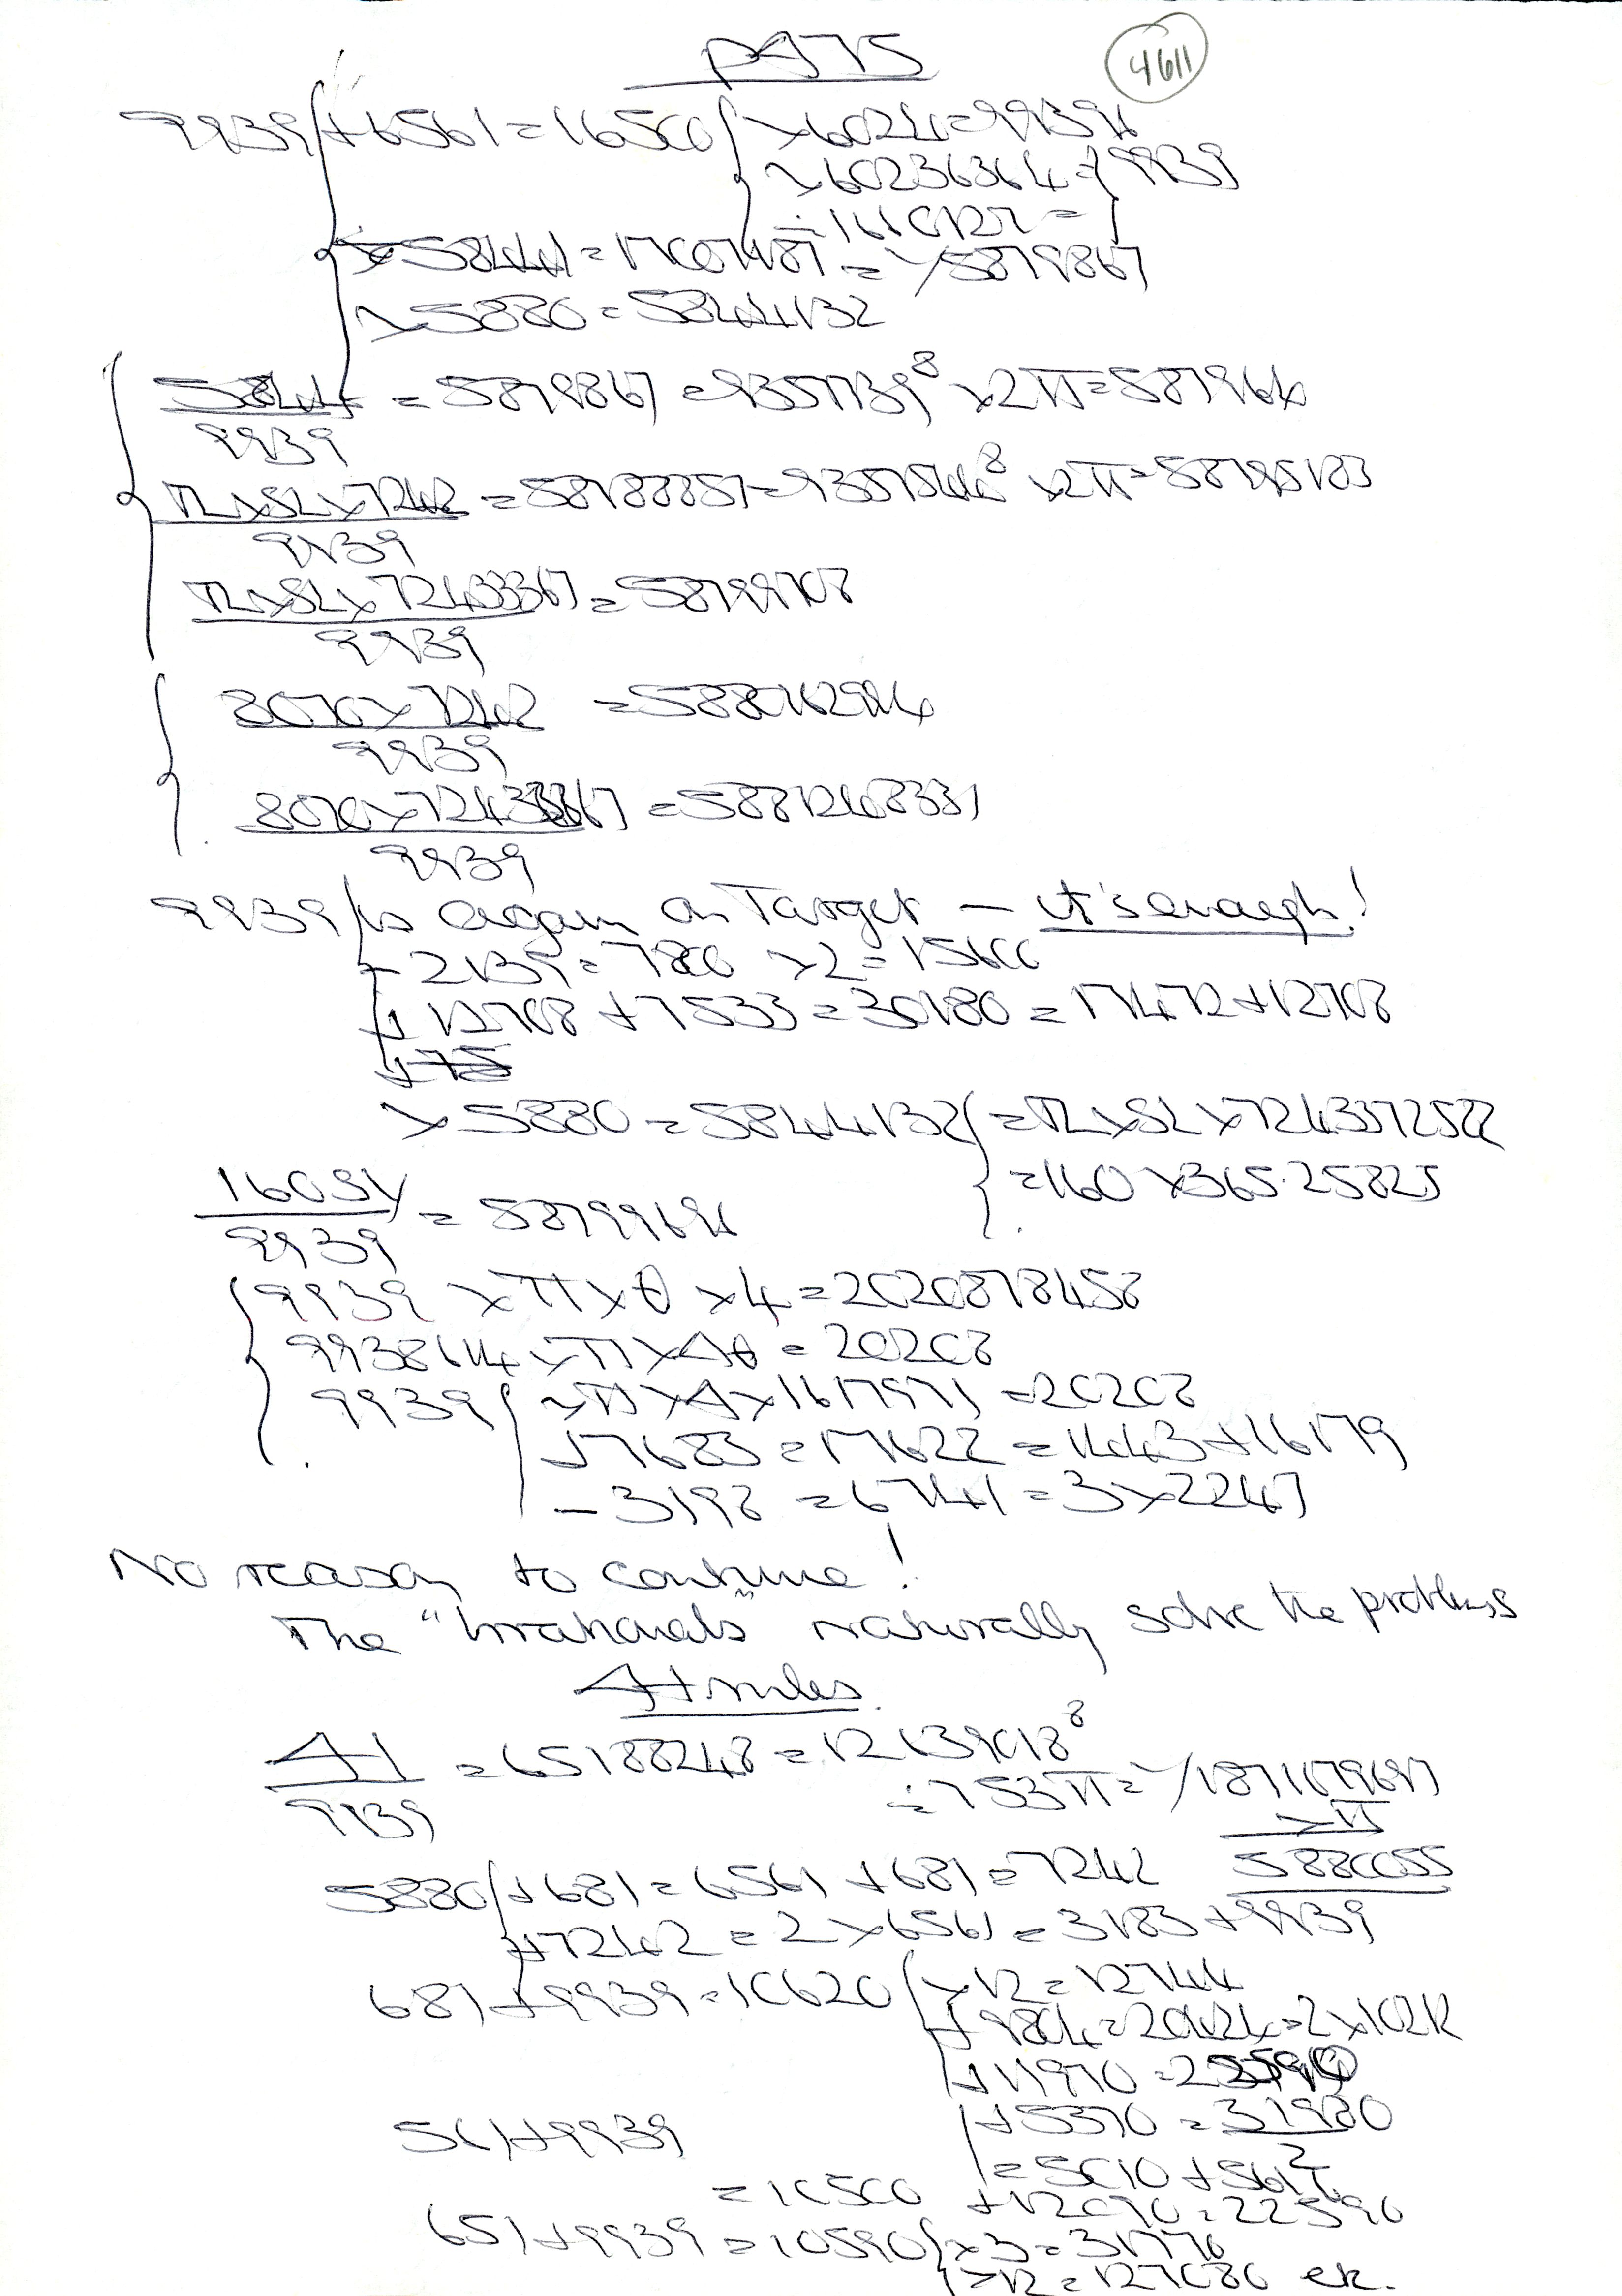 p975
4611
9939 + 6561 = 16500 { × 6024 = 99396
× 60236364 = } 9939
÷ 1660127 = }
× 58441 = 17007187 = 1/5879867
× 5880 = 5844132
5844/9939 = 5879867 = 9357139⁸ × 2π = 587964
× 7242/9939 = 58788857 = 9357544⁸ × 2π = 58795183
× 72433367/9939 = 58799708
8070 × 7242/9939 = 588012984
8070 × 72433367/9939 = 5881248331
9939 is again on Target — it's enough!
- 2139 = 7800 × 2 = 15600
+ 12708 + 7533 = 30180 = 17472 + 12708
+ 75
× 5880 = 5844132 { = × 7243372522
= 160 × 365.25825
160SY/9939 = 58799696
9939 × π × θ × 4 = 2020878458
9938614 × π × 4θ = 20208
9939 { × π × 4 × 1617971 = 20208
+ 7683 = 17622 = 1443 + 16179
- 3198 = 6741 = 3 × 2247
No reason to continue!
The "Irrationals" naturally solve the problems
At rules
A1/9939 = 65188248 = 12639018⁸
÷ 753π = 1/1871679697
× π
5880055
5880 { + 681 = 6561 + 681 = 7242
+ 7242 = 2 × 6561 = 3183 + 9939
681 + 9939 = 10620 { × 12 = 12744
+ 9804 = 20424 = 2 × 10212
+ 11970 = 22590
+ 5370 = 31980/2
= 5010 + 561
561 + 9939
= 10500 + 12090 = 22590
651 + 9939 = 10590 { × 3 = 31770
× 12 = 127080 etc.